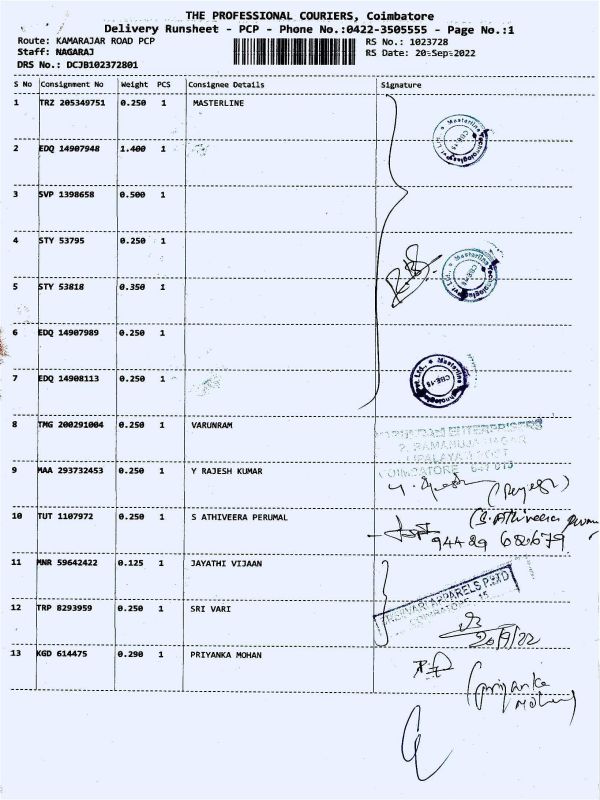 THE PROFESSIONAL COURIERS, Coimbatore
Delivery Runsheet - PCP - Phone No.:0422-3505555 - Page No.:1
Route: KAMARAJAR ROAD PCP RS No.: 1023728
Staff: NAGARAJ RS Date: 20-Sep-2022
DRS No.: DCJB102372801
S No Consignment No Weight PCS Consignee Details Signature
1 TRZ 205349751 0.250 1 MASTERLINE
2 EDQ 14907948 1.400 1
3 SVP 1398658 0.500 1
4 STY 53795 0.250 1
5 STY 53818 0.350 1
6 EDQ 14907989 0.250 1
7 EDQ 14908113 0.250 1
8 TMG 200291004 0.250 1 VARUNRAM
ENTERPRISES
COIMBATORE
9 MAA 293732453 0.250 1 Y RAJESH KUMAR
10 TUT 1107972 0.250 1 S ATHIVEERA PERUMAL
(S. Athiveera
94429 68679
11 MNR 59642422 0.125 1 JAYATHI VIJAAN
APPARELS
COIMBATORE - 15
12 TRP 8293959 0.250 1 SRI VARI
20/9/22
13 KGD 614475 0.290 1 PRIYANKA MOHAN
(priyanka